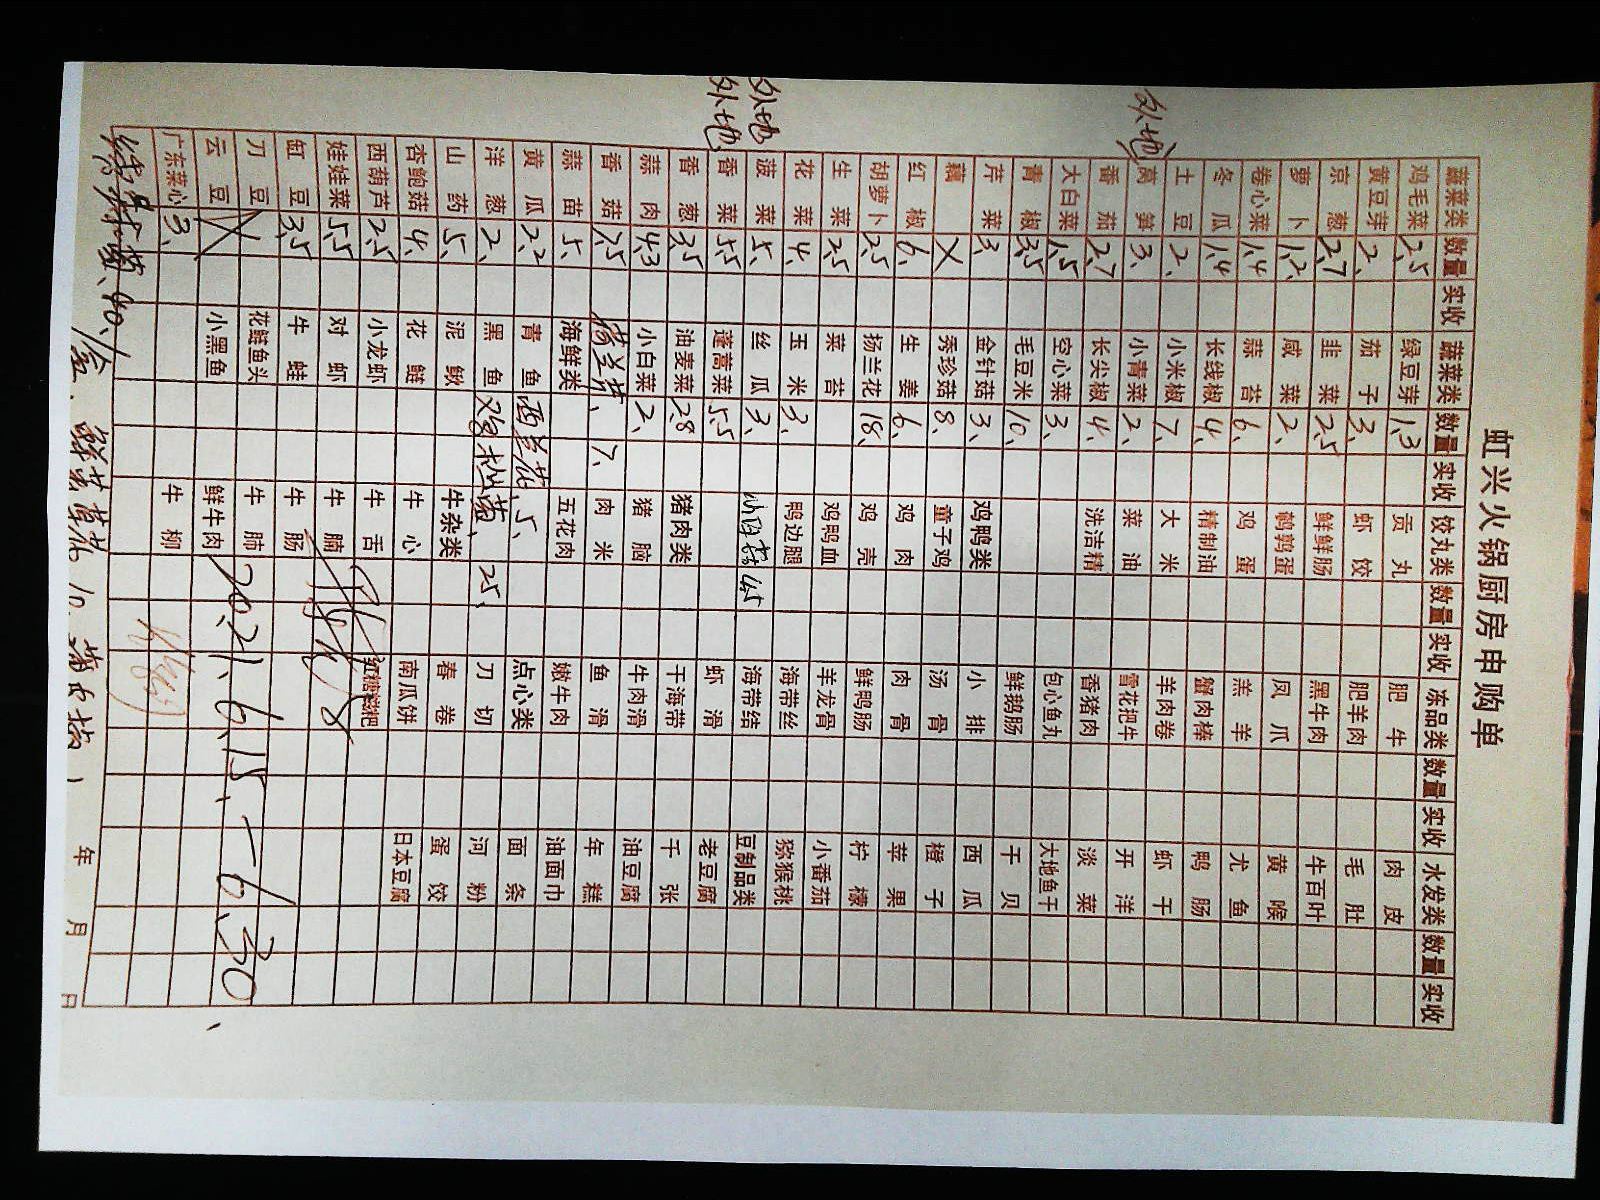 虹兴火锅厨房申购单
蔬菜类 数量 实收 蔬菜类 数量 实收 饺丸类 数量 实收 冻品类 数量 实收 水发类 数量 实收
鸡毛菜 2.5 绿豆芽 1.3 贡丸 肥牛 肉皮
黄豆芽 2、 茄子 3、 虾饺 肥羊肉 毛肚
京葱 2.7 韭菜 2.5 鲜鲜肠 黑牛肉 牛百叶
萝卜 1.2、 咸菜 2、 鹌鹑蛋 凤爪 黄喉
卷心菜 1.4 蒜苔 6、 鸡蛋 羔羊 尤鱼
冬瓜 1.4 长线椒 4、 精制油 蟹肉棒 鸭肠
土豆 2、 小米椒 7、 大米 羊肉卷 虾干
外地 莴笋 3、 小青菜 2、 菜油 雪花把牛 开洋
番茄 2.7 长尖椒 4、 洗洁精 香猪肉 淡菜
大白菜 1.5 空心菜 3、 包心鱼丸 大地鱼干
青椒 3.5 毛豆米 10、 鲜鹅肠 干贝
芹菜 3、 金针菇 3、 鸡鸭类 小排 西瓜
藕 X 秀珍菇 8、 童子鸡 汤骨 橙子
红椒 6、 生姜 6、 鸡肉 肉骨 苹果
胡萝卜 2.5 扬兰花 18、 鸡壳 鲜鸭肠 柠檬
生菜 2.5 菜苔 鸡鸭血 羊龙骨 小番茄
花菜 4、 玉米 3、 鸭边腿 海带丝 猕猴桃
外地 菠菜 5、 丝瓜 3、 45 海带结 豆制品类
外地 香菜 5.5 蓬蒿菜 5.5 虾滑 老豆腐
香葱 3.5 油麦菜 2.8 猪肉类 干海带 千张
蒜肉 4.3 小白菜 2、 猪脑 牛肉滑 油豆腐
香菇 7.5 7、 肉米 鱼滑 年糕
蒜苗 5、 海鲜类 五花肉 嫩牛肉 油面巾
黄瓜 2.2 青鱼 西兰花、5、 点心类 面条
洋葱 2、 黑鱼 25、 刀切 河粉
山药 5、 泥鳅 牛杂类 春卷 蛋饺
杏鲍菇 4、 花鲢 牛心 南瓜饼 日本豆腐
西葫芦 2.5 小龙虾 牛舌 红糖糍粑
娃娃菜 5.5 对虾 牛腩
缸豆 3.5 牛蛙 牛肠
刀豆 花鲢鱼头 牛肺
云豆 小黑鱼 鲜牛肉 2021.6.15.—6.30、
广东菜心 3、 牛柳
年 月 日